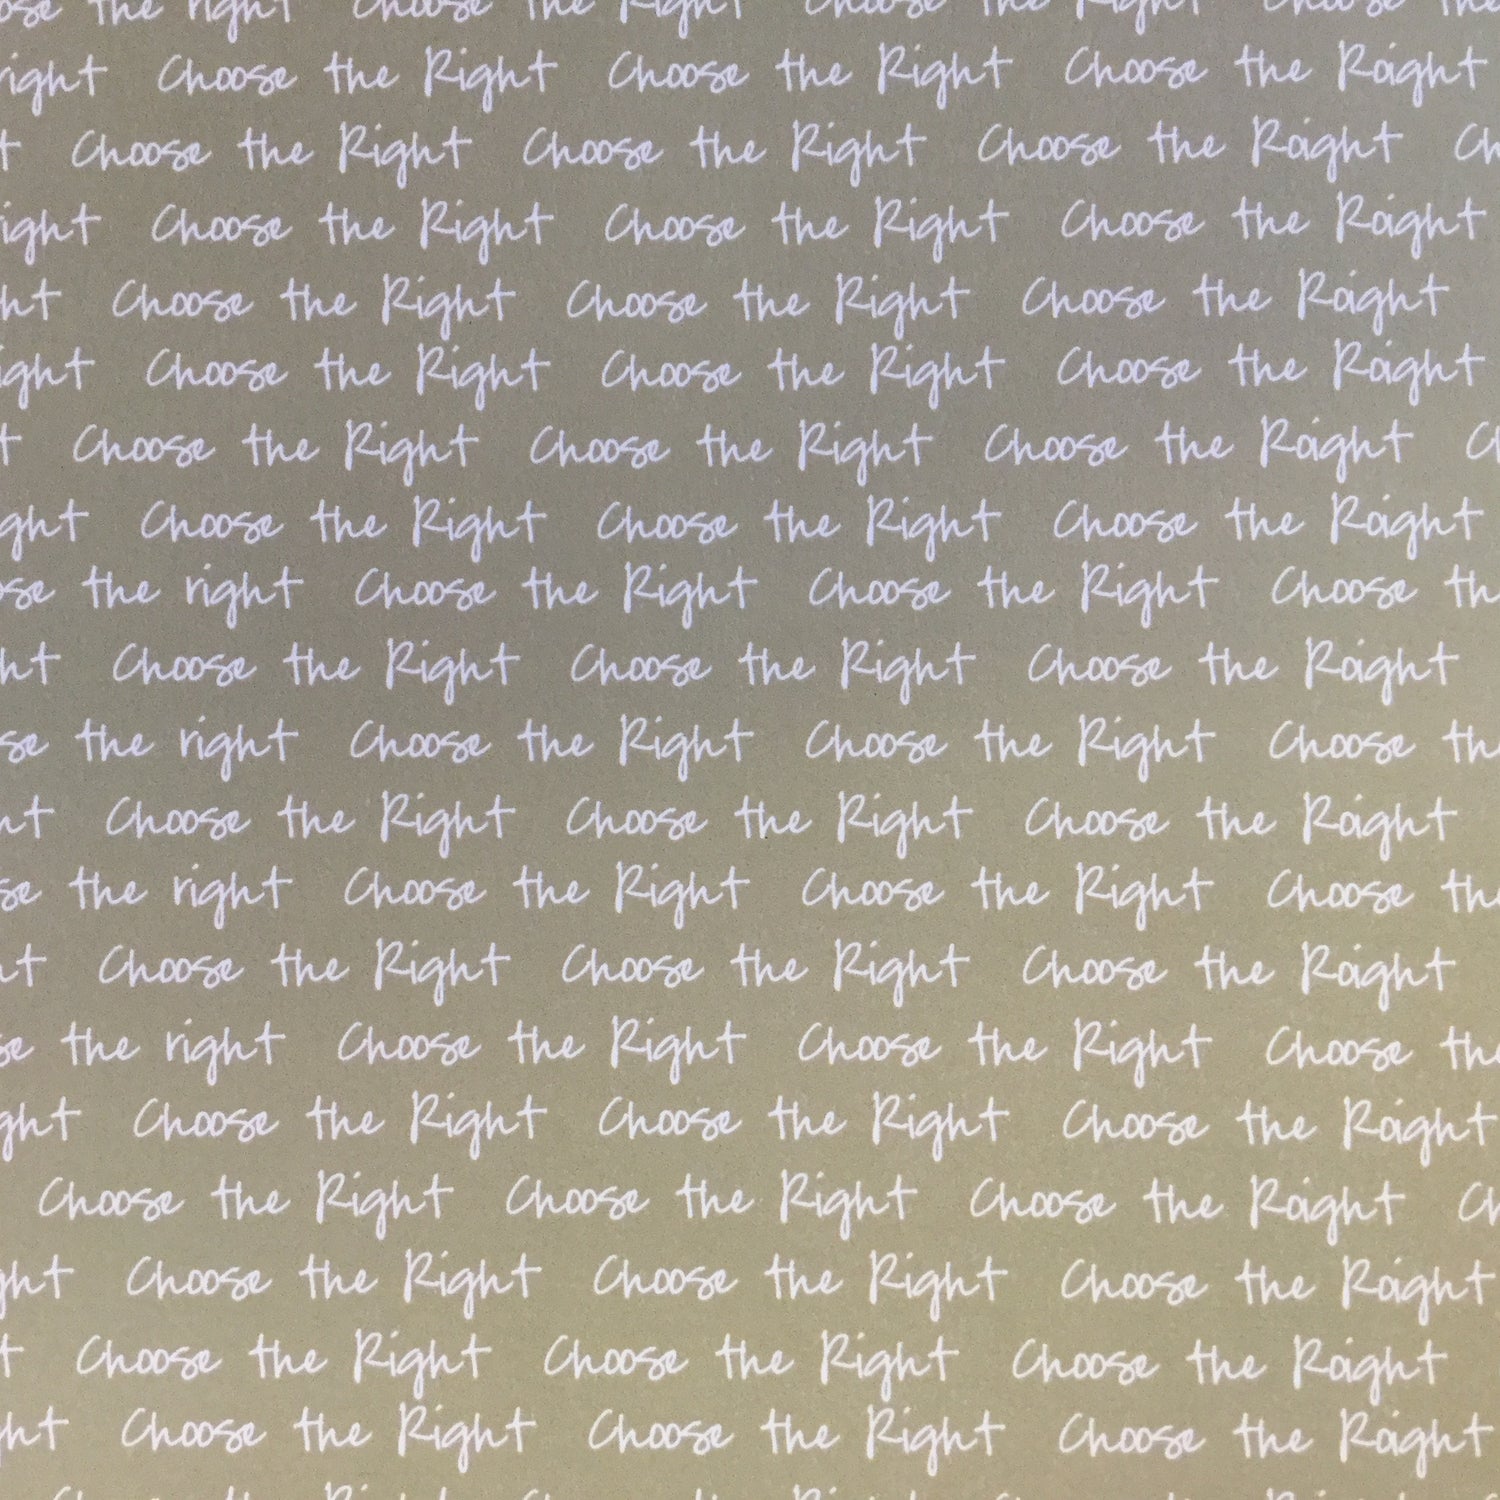 the right Choose the Right Choose the Right Choose the
right Choose the Right Choose the Right Choose the Roight
Choose the Right Choose the Right Choose the Roight
ight Choose the Right Choose the Right Choose the Roight
ht Choose the Right Choose the Right Choose the Roight
ight Choose the Right Choose the Right Choose the Roight
t Choose the Right Choose the Right Choose the Roight
ght Choose the Right Choose the Right Choose the Roight
ose the right Choose the Right Choose the Right Choose the
ht Choose the Right Choose the Right Choose the Roight
se the right Choose the Right Choose the Right Choose the
ht Choose the Right Choose the Right Choose the Roight
se the right Choose the Right Choose the Right Choose the
ht Choose the Right Choose the Right Choose the Roight
se the right Choose the Right Choose the Right Choose the
ght Choose the Right Choose the Right Choose the Roight
Choose the Right Choose the Right Choose the Roight
ght Choose the Right Choose the Right Choose the Roight
t Choose the Right Choose the Right Choose the Roight
ht Choose the Right Choose the Right Choose the Roight